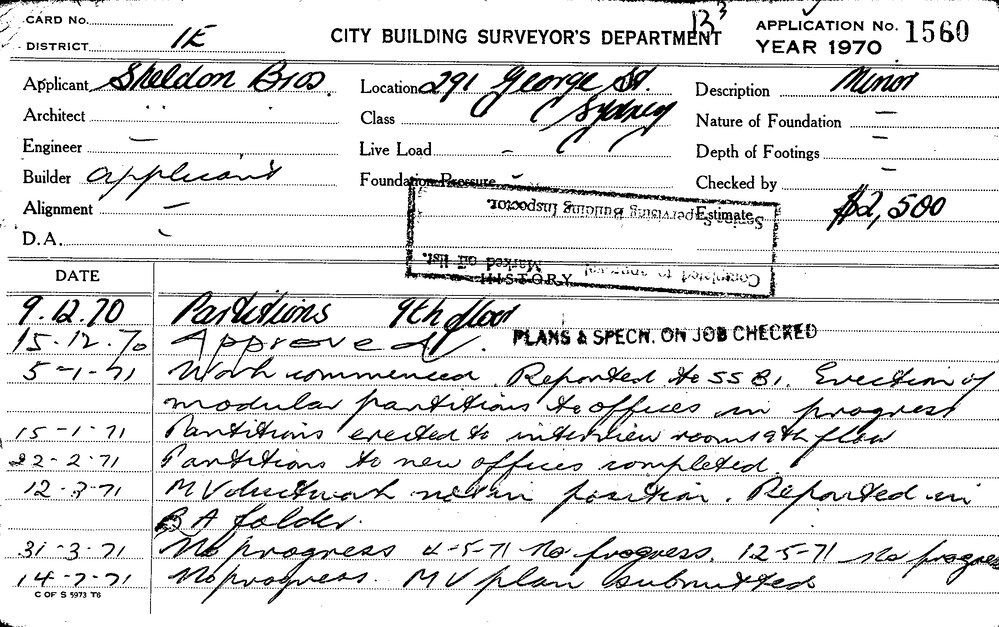 CARD No.
DISTRICT 1E
CITY BUILDING SURVEYOR'S DEPARTMENT
APPLICATION No. 1560
YEAR 1970
Applicant Sheldon Bros. Location 291 George St. Sydney Description Minor
Architect Class Nature of Foundation —
Engineer — Live Load - Depth of Footings —
Builder applicant Foundation Pressure - Checked by -
Alignment — Estimate $2,500
D.A. -
Senior Supervising Building Inspector.
Marked off list.
Completed to approval
DATE HISTORY
9.12.70 Partitions 9th floor
15.12.70 Approved. PLANS & SPECN. ON JOB CHECKED
5-1-71 Work commenced. Reported to SSBI. Erection of
modular partitions to offices in progress
15-1-71 Partitions erected to interview room 9th floor
22-2-71 Partitions to new offices completed.
12-3-71 MV ductwork not in position. Reported in
BA folder.
31-3-71 No progress 4-5-71 No progress. 12-5-71 no progress
14-7-71 No progress. MV plan submitted
C OF S 5973 T6